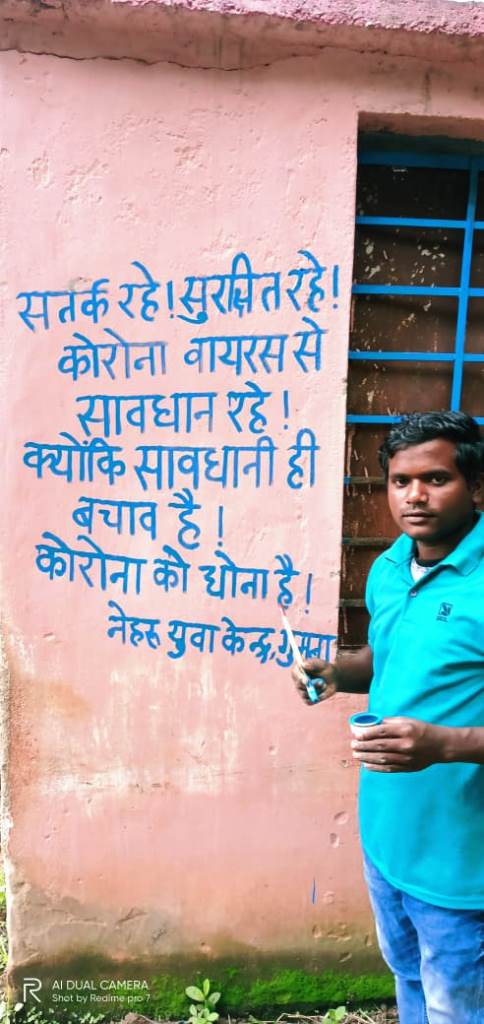 सतर्क रहे! सुरक्षित रहे!
कोरोना वायरस से
सावधान रहे!
क्योंकि सावधानी ही
बचाव है!
कोरोना को धोना है!
नेहरू युवा केन्द्र,
R
AI DUAL CAMERA
Shot by Realme pro 7